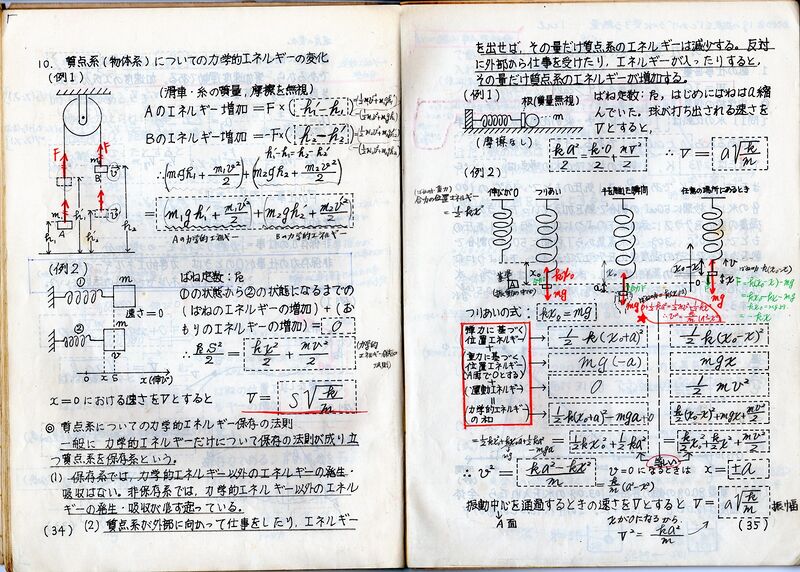 10. 質点系(物体系)についての力学的エネルギーの変化
(例1)
(滑車・糸の質量,摩擦を無視)
Aのエネルギー増加 =F×(h₁'-h₁)
Bのエネルギー増加 =-F×(h₂-h₂')
h₁'-h₁=h₂-h₂'
∴(m₁gh₁'+m₁v²/2)+(m₂gh₂'+m₂v²/2)
=(m₁gh₁+m₁v²/2)+(m₂gh₂+m₂v²/2)
Aの力学的エネルギー Bの力学的エネルギー
F
F
m₂
B
m₁
A
h₁
h₁'
h₂
(例2)
ばね定数:k
①の状態から②の状態になるまでの
(ばねのエネルギーの増加)+(お
もりのエネルギーの増加)=0
∴ kS²/2 = kx²/2 + mv²/2
① m
速さ=0
② m
v
0 x S x(伸び)
x=0における速さをVとすると V= S√(k/m)
◎ 質点系についての力学的エネルギー保存の法則
一般に力学的エネルギーだけについて保存の法則が成り立
つ質点系を保存系という。
(1) 保存系では,力学的エネルギー以外のエネルギーの発生・
吸収はない。非保存系では,力学的エネルギー以外のエネル
ギーの発生・吸収が必ず起っている。
(34) (2) 質点系が外部に向かって仕事をしたり,エネルギー
を出せば,その量だけ質点系のエネルギーは減少する。反対
に外部から仕事を受けたり,エネルギーが入ったりすると,
その量だけ質点系のエネルギーが増加する。
(例1)
板(質量無視)
m
(摩擦なし)
ばね定数:k,はじめにばねはa縮
んでいた。球が打ち出される速さを
Vとすると,
ka²/2 = k·0/2 + mV²/2 ∴ V= a√(k/m)
(例2)
伸びが0 つりあい 手を離した瞬間 任意の場所にあるとき
=½kx²
基準
A
x₀
kx₀
mg
a
mg
x₀-x
x
v
mg
F=k(x₀-x)-mg
=kx₀-kx-mg
つりあいの式: kx₀=mg
弾力に基づく
位置エネルギー
½k(x₀+a)² ½k(x₀-x)²
+
重力に基づく
位置エネルギー
(A面で0とする)
mg(-a) mgx
+
(運動エネルギー)
0 ½mv²
=
(力学的エネルギーの和)
½k(x₀+a)²-mga+0 k/2(x₀-x)²+mgx+mv²/2
=½kx₀²+½ka² =k/2x₀²+k/2x²+mv²/2
等しい
∴ v²= (ka²-kx²)/m v=0になるときは x= ±a
=k/m(a²-x²)
振動中心を通過するときの速さをVとすると V= a√(k/m) 振り幅
A面 xが0になるから
V²=ka²/m
(35)